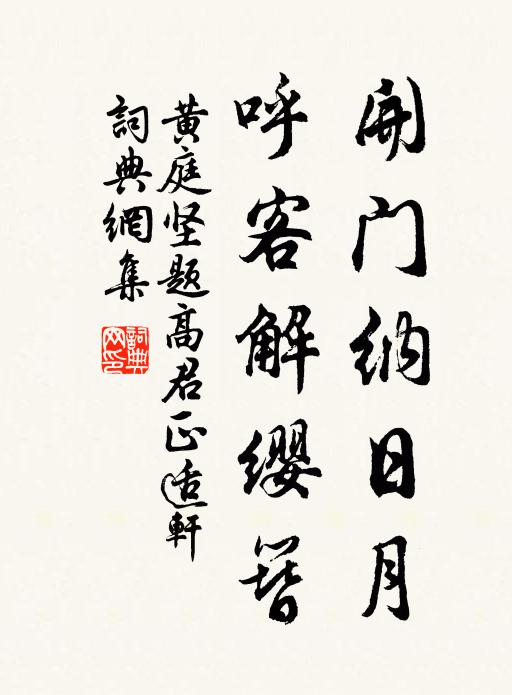 開门纳日月
呼客解缨簪
黄庭坚题高君正适軒
詞典網集
詞典
网印